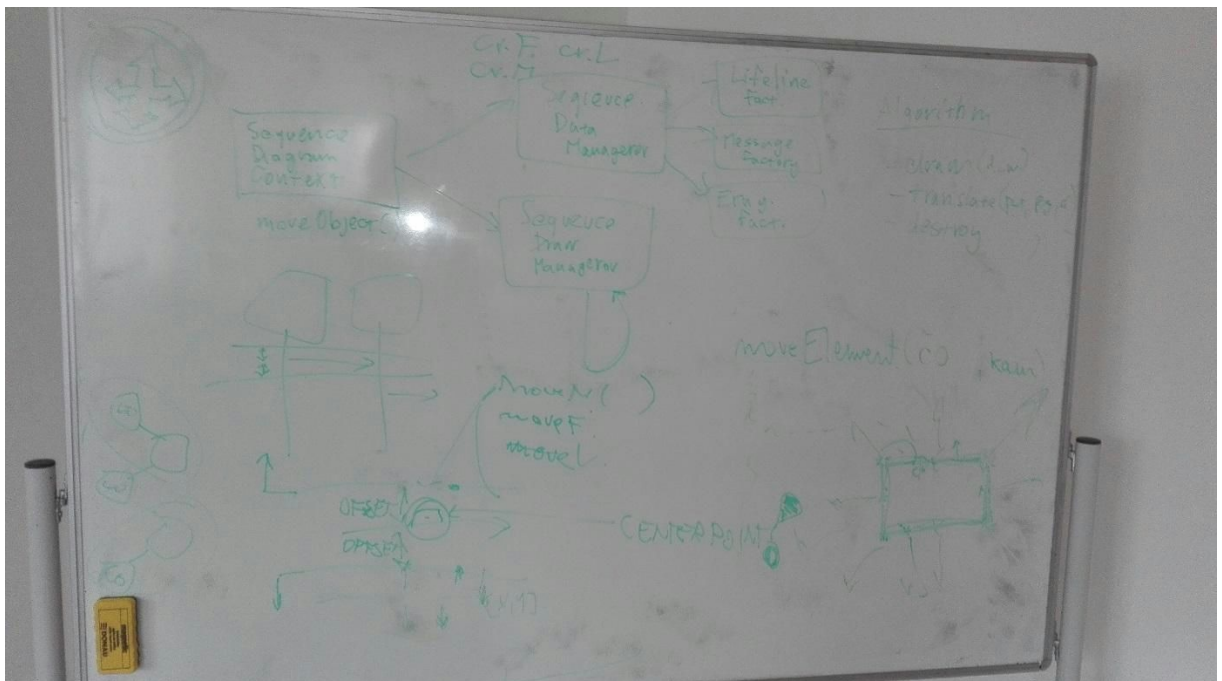 Cr.F. Cr.L
Cr.M
Sequence
Diagram
Context
moveObject(
Seqieuce
Data
Managerer
Lifeline
fact
Message
factory
Frag.
fact.
Sequence
Draw
Managerer
Algorithm
- Translate(
- destroy
moveElement(
kam)
MoveM( )
moveF
moveL
OFFSET
OFFSET
CENTERPOINT